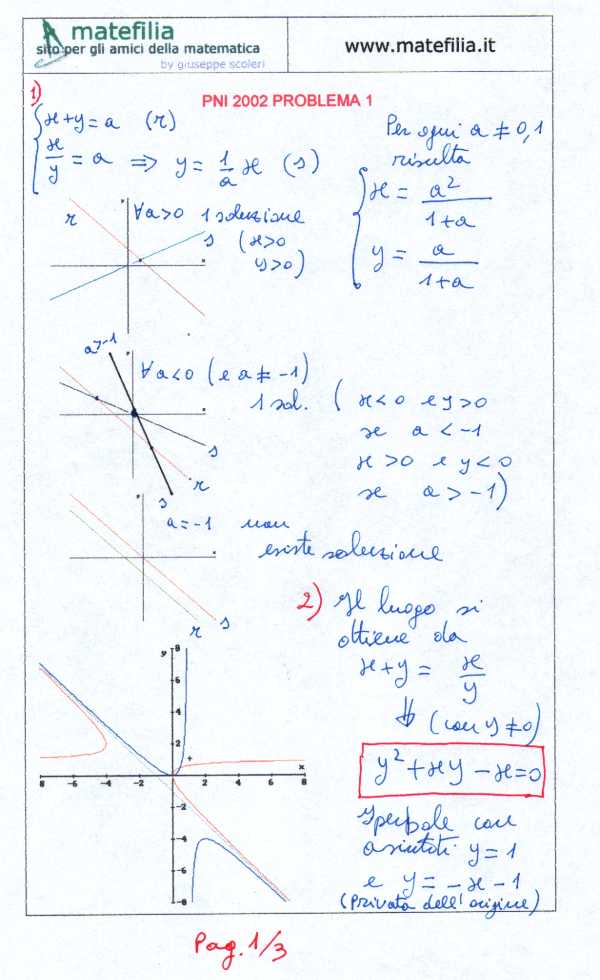 matefilia
sito per gli amici della matematica
by giuseppe scoleri
www.matefilia.it
1)
PNI 2002 PROBLEMA 1
x+y=a (r)
x/y = a ⇒ y = 1/a x (s)
Per ogni a ≠ 0,1
risulta
x = a²/(1+a)
y = a/(1+a)
r
∀a>0 1 soluzione
s (x>0
y>0)
a>-1
∀a<0 (e a≠-1)
1 sol. ( x<0 e y>0
se a<-1
x>0 e y<0
se a>-1)
s
r
s
a=-1 non
esiste soluzione
r s
2) Il luogo si
ottiene da
x+y = x/y
⇓ (con y≠0)
y²+xy-x=0
Iperbole con
asintoti y=1
e y=-x-1
(privata dell'origine)
y 8
6
4
2
-8 -6 -4 -2 0 2 4 6 8 x
-2
-4
-6
-8
Pag. 1/3